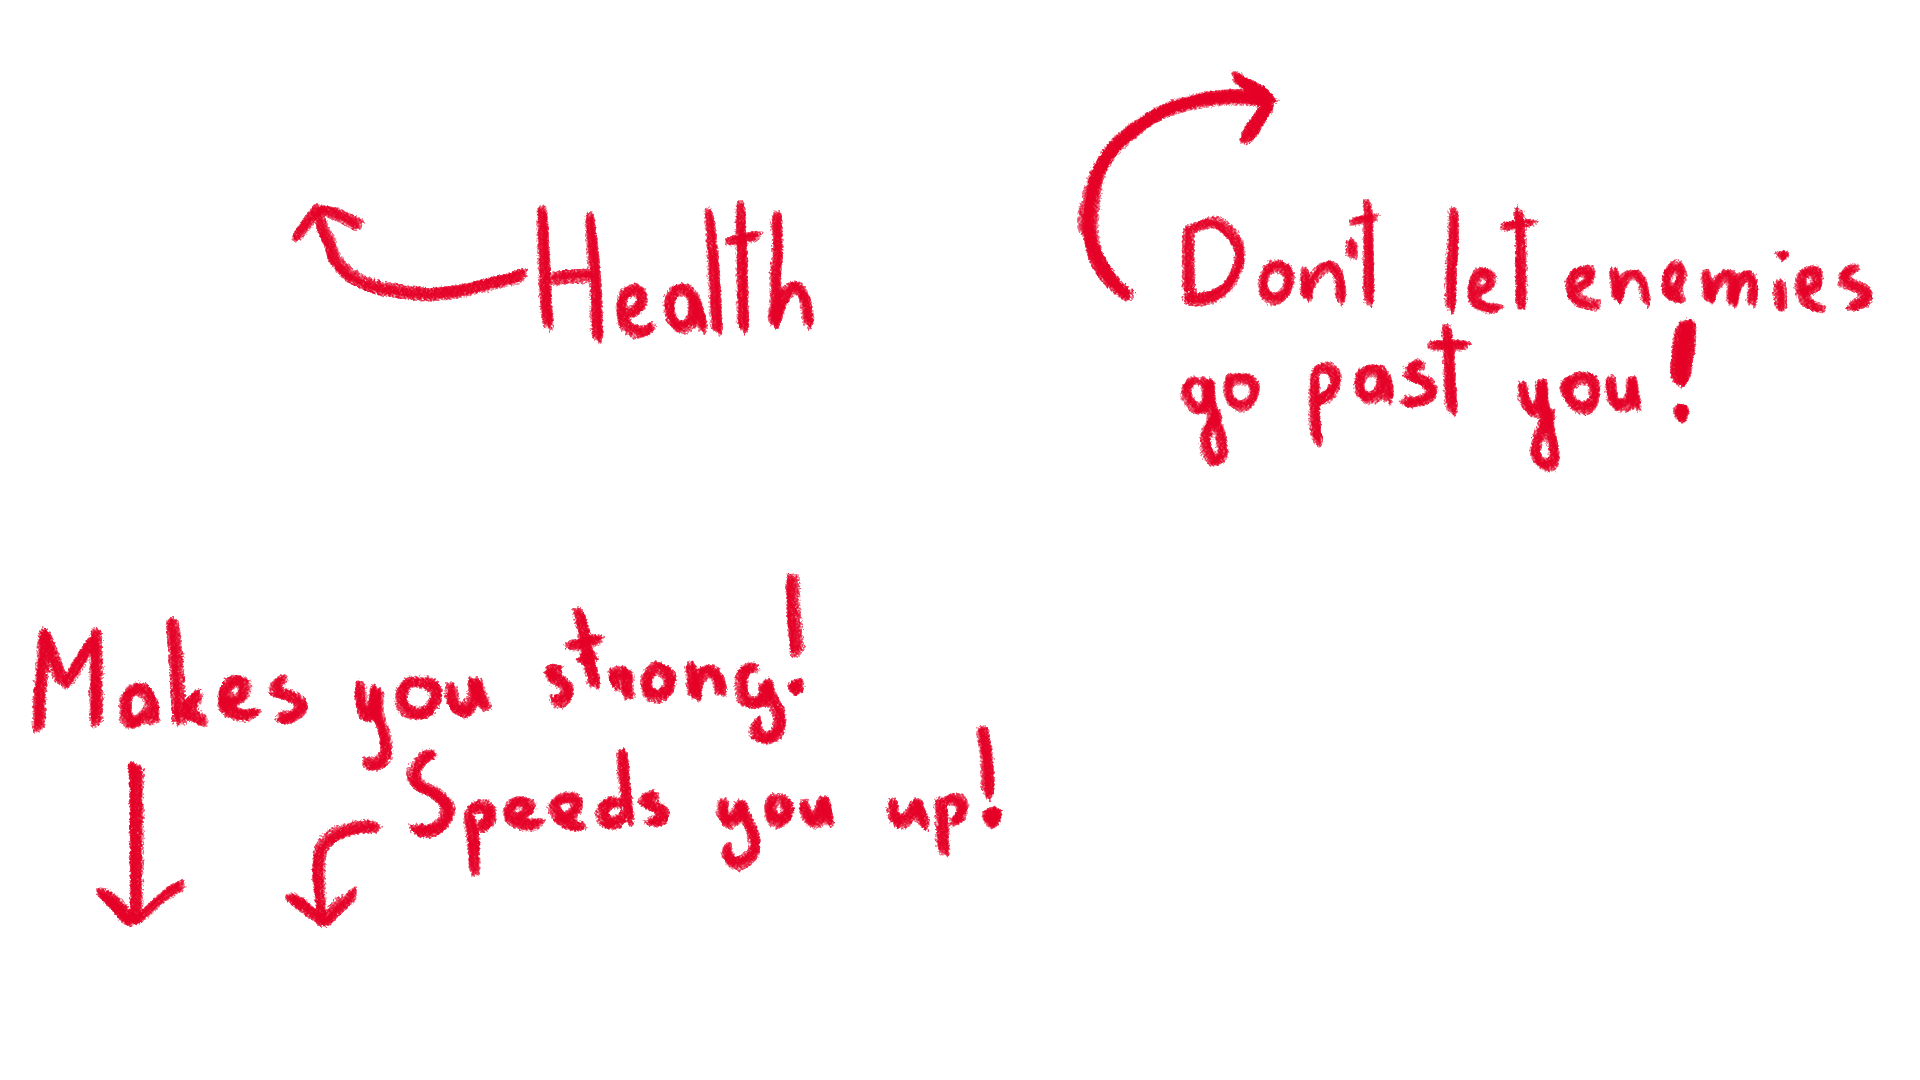 Health
Don't let enemies
go past you!
Makes you strong!
Speeds you up!